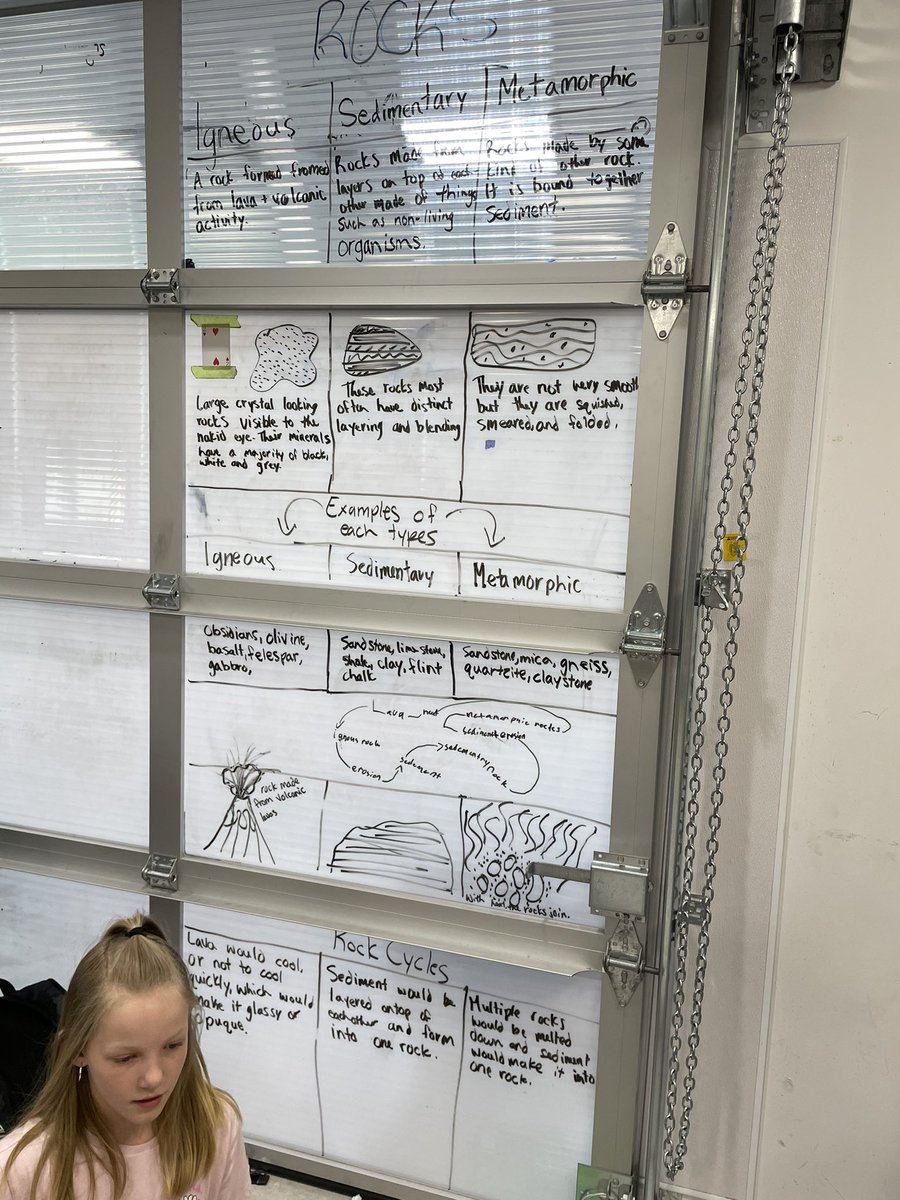 ROCKS
Igneous
A rock formed fromed
from lava + volcanic
activity.
Sedimentary
Rocks made from
layers on top of each
other made of things
such as non-living
organisms.
Metamorphic
Rocks made by some
kind of other rock.
It is bound together
sediment.
Large crystal looking
rocks visible to the
nakid eye. Their minerals
have a majority of black,
white and grey.
These rocks most
often have distinct
layering and blending
They are not very smooth
but they are squished,
smeared, and folded.
Examples of
each types
Igneous
Sedimentary
Metamorphic
Obsidians, olivine,
basalt, felespar,
gabbro,
Sandstone, lime stone,
shale, clay, flint
chalk
Sandstone, mica, gneiss,
quarteite, claystone
Lava
heat
metamorphic rocks
erosion
ignous rock
sedementry rock
erosion
sediment
rock made
from volcanic
With heat the rocks join.
Rock Cycles
Lava would cool,
or not to cool
quickly, which would
make it glassy or
opuque.
Sediment would be
layered ontop of
eachother and form
into one rock.
Multiple rocks
would be melted
down and sediment
would make it into
one rock.